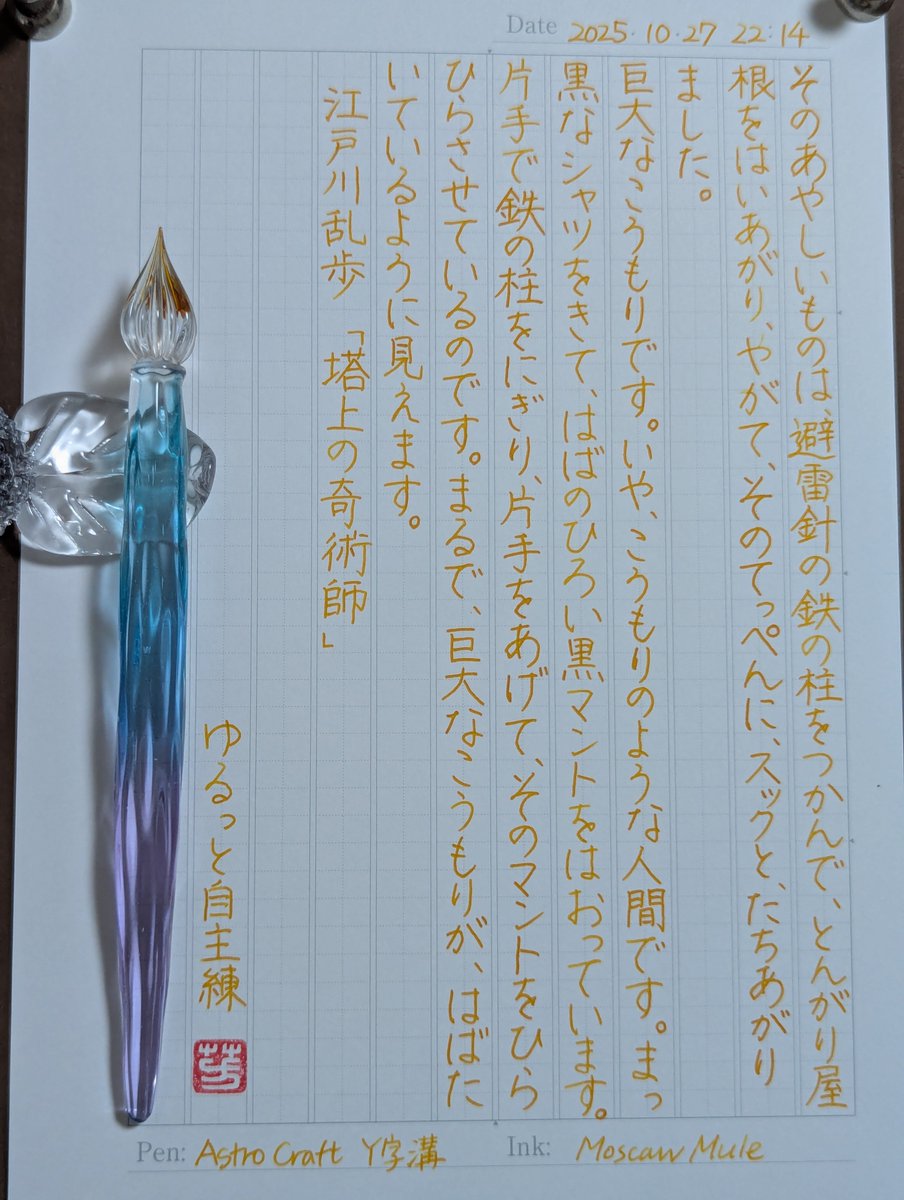 Date 2025.10.27 22:14
そのあやしいものは、避雷針の鉄の柱をつかんで、とんがり屋
根をはいあがり、やがて、そのてっぺんに、スックと、たちあがり
ました。
巨大なこうもりです。いや、こうもりのような人間です。まっ
黒なシャツをきて、はばのひろい黒マントをはおっています。
片手で鉄の柱をにぎり、片手をあげて、そのマントをひら
ひらさせているのです。まるで、巨大なこうもりが、はばた
いているように見えます。
江戸川乱歩 「塔上の奇術師」
ゆるっと自主練
Pen: Astro Craft Y字溝
Ink: Moscaw Mule